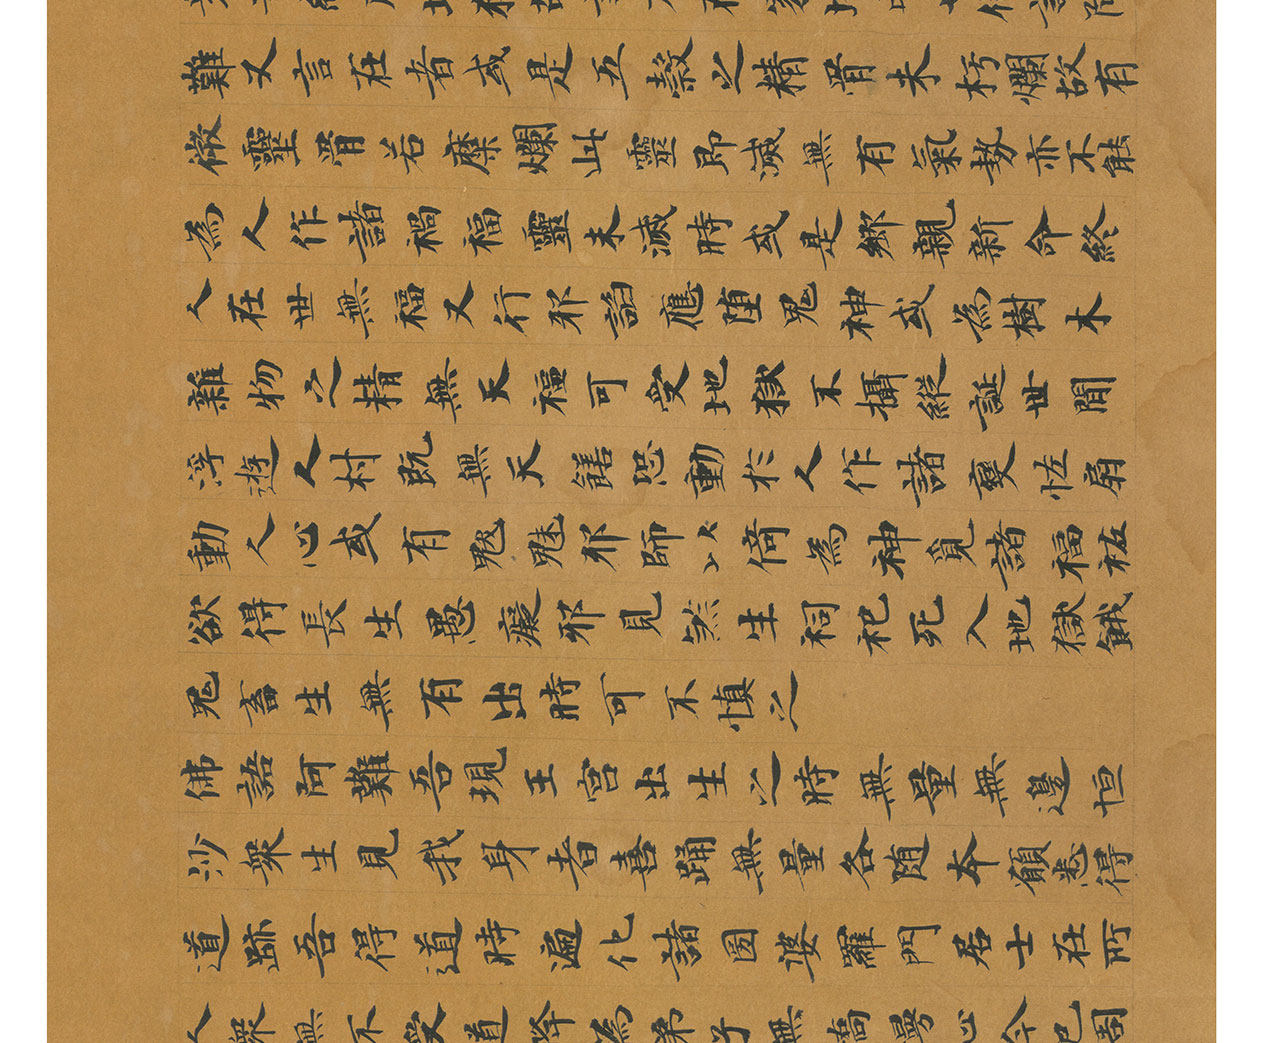 難又言在者或是五穀之精骨未朽爛故有
微靈骨若糜爛此靈即滅無有氣勢亦不能
為人作諸禍福靈未滅時或是鄉親新命終
人在世無福又行邪諂應堕鬼神或為樹木
雜物之精無天福可受地獄不攝縱誕世間
浮遊人村既無天饍恐動於人作諸變恠扇
動人心或有魅邪師以倚為神覓諸福祐
欲得長生愚癡邪見煞生祠祀死入地獄餓
鬼畜生無有出時可不慎之
佛語阿難吾現王宮出生之時無量無邊恒
沙衆生見我身者喜踊無量各随本願悉得
道跡吾得道時遍化諸國婆羅門居士在所
人衆無不受道降為弟子無憍慢心今已周